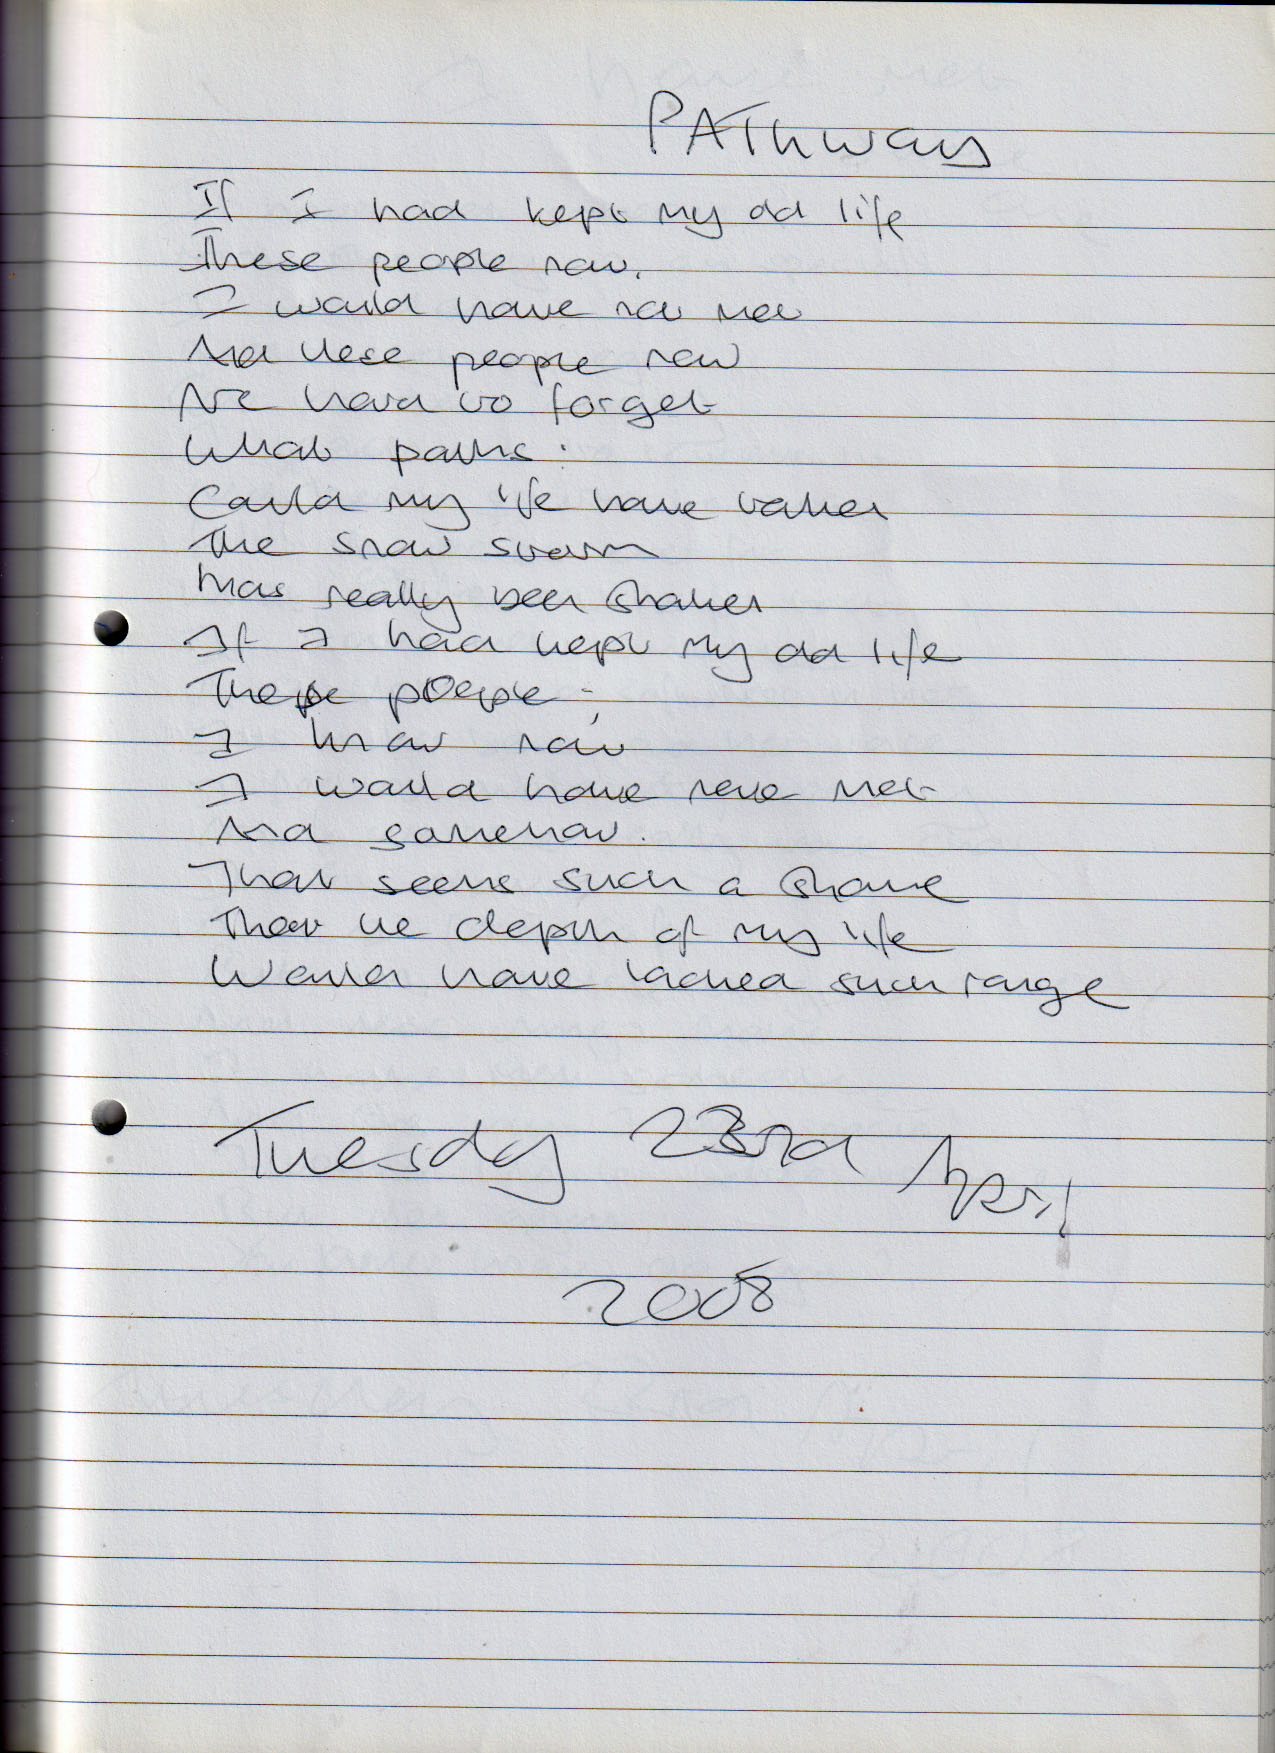 PAThways
If I had kept my old life
These people now.
I would have not met
And these people now
Are hard to forget
What paths.
Could my life have taken
The snow storm
has really been shaken
If I had kept my old life
These people -,
I know now
I would have never met
And somehow.
That seems such a shame
That the depth of my life
Would have lacked such range
Tuesday 23rd April
2008